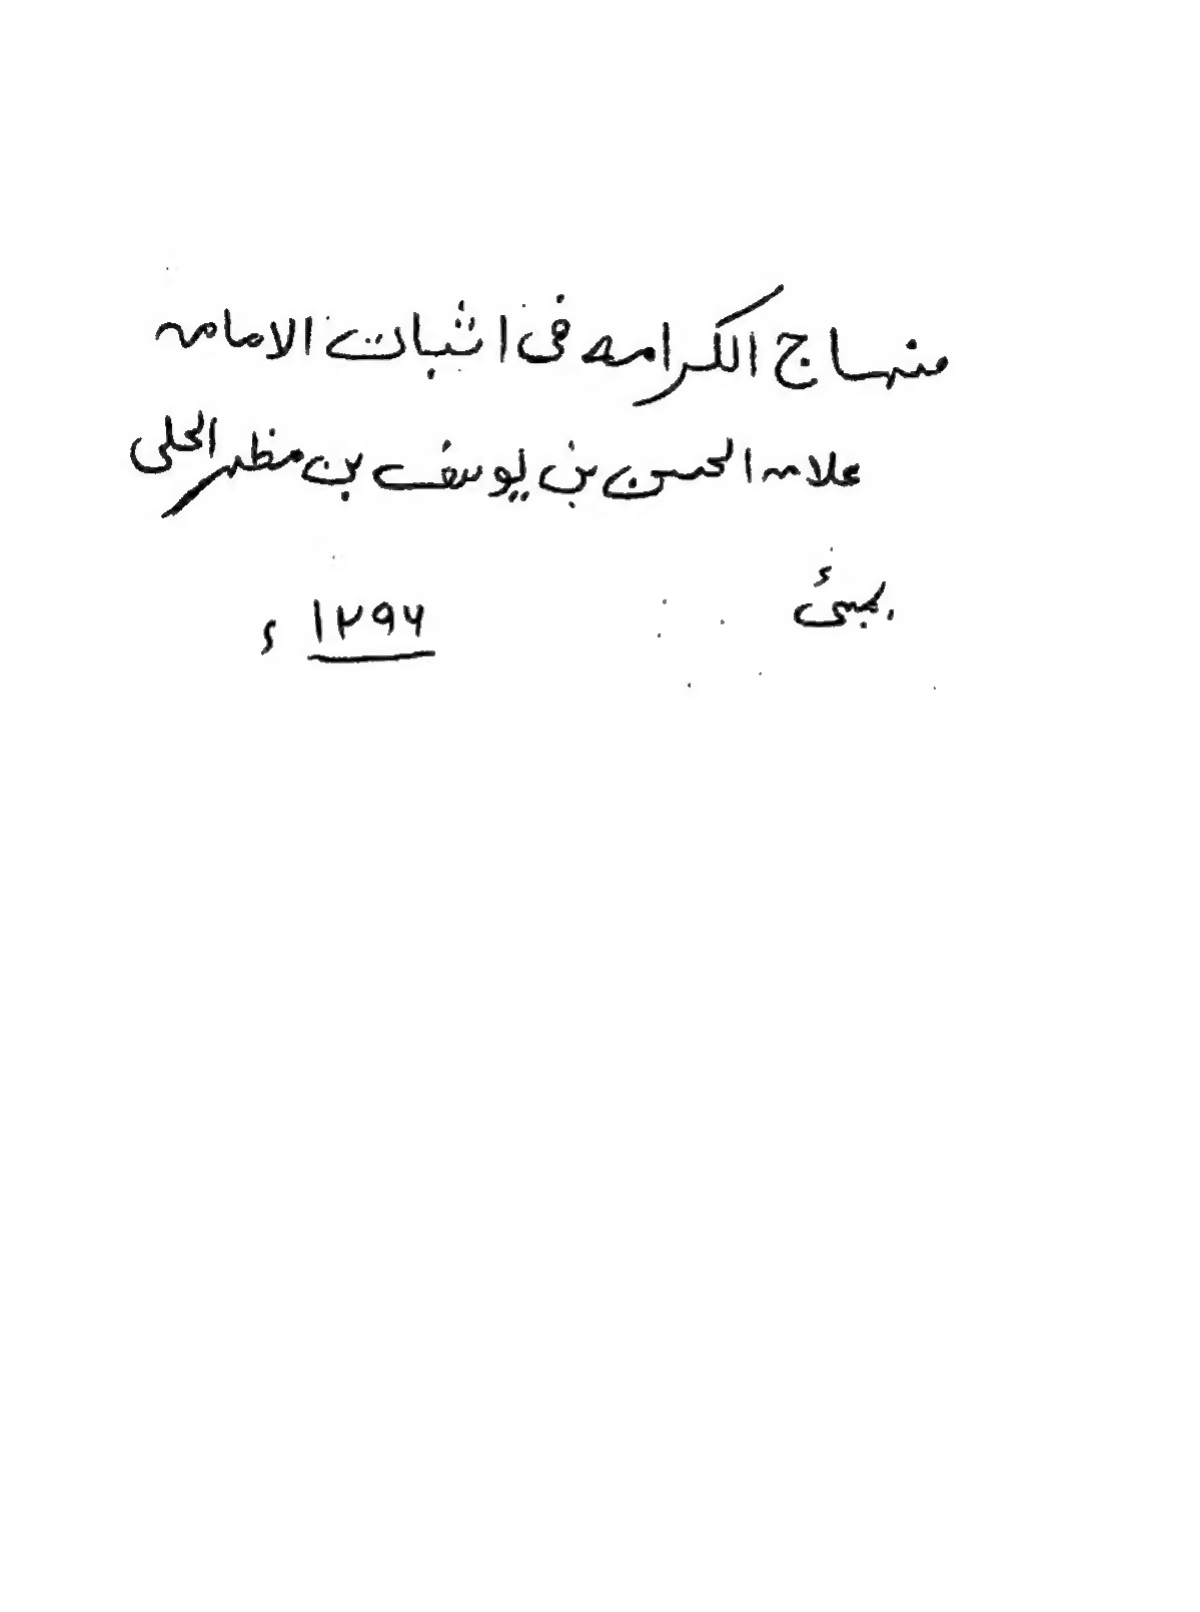 منہاج الکرامہ فی اثبات الامامہ
علامہ الحسن بن یوسف بن مظہر الحلی
بمبئ ١٢٩٦ ء